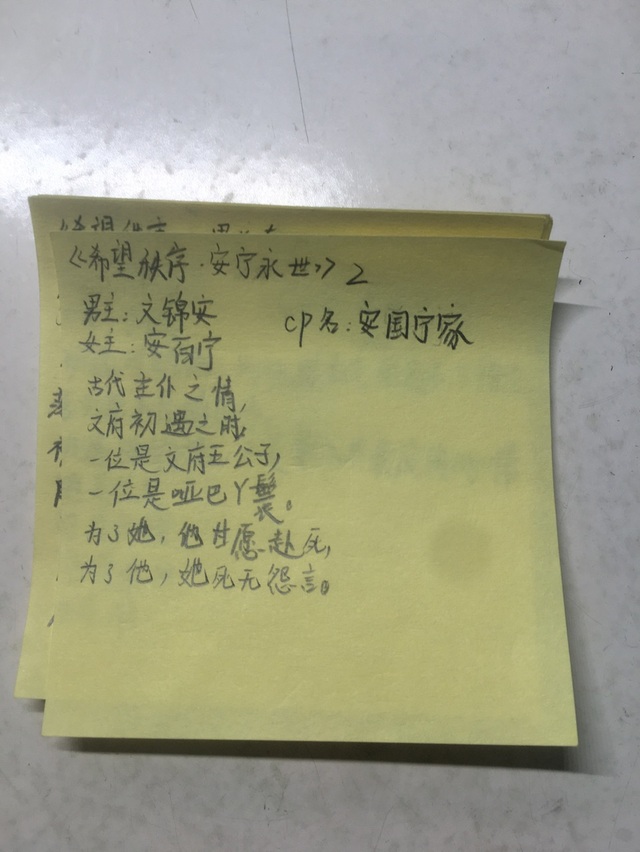 《希望秩序·安宁永世》2
男主：文锦安
cp名：安国宁家
女主：安百宁
古代主仆之情，
文府初遇之时，
一位是文府王公子，
一位是哑巴丫鬟。
为了她，他甘愿赴死，
为了他，她死无怨言。